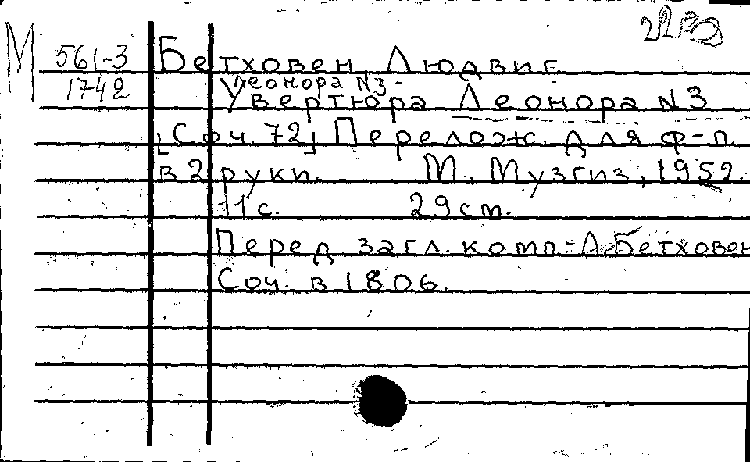 М 561-3 Бетховен, Людвиг
1742 Леонора N3-
Увертюра Леонора N3
[Соч. 72] Перелож. для ф-п.
в 2 руки. М. Музгиз, 1952.
11 с. 29 см.
Перед загл. комп.: Л. Бетховен
Соч. в 1806.